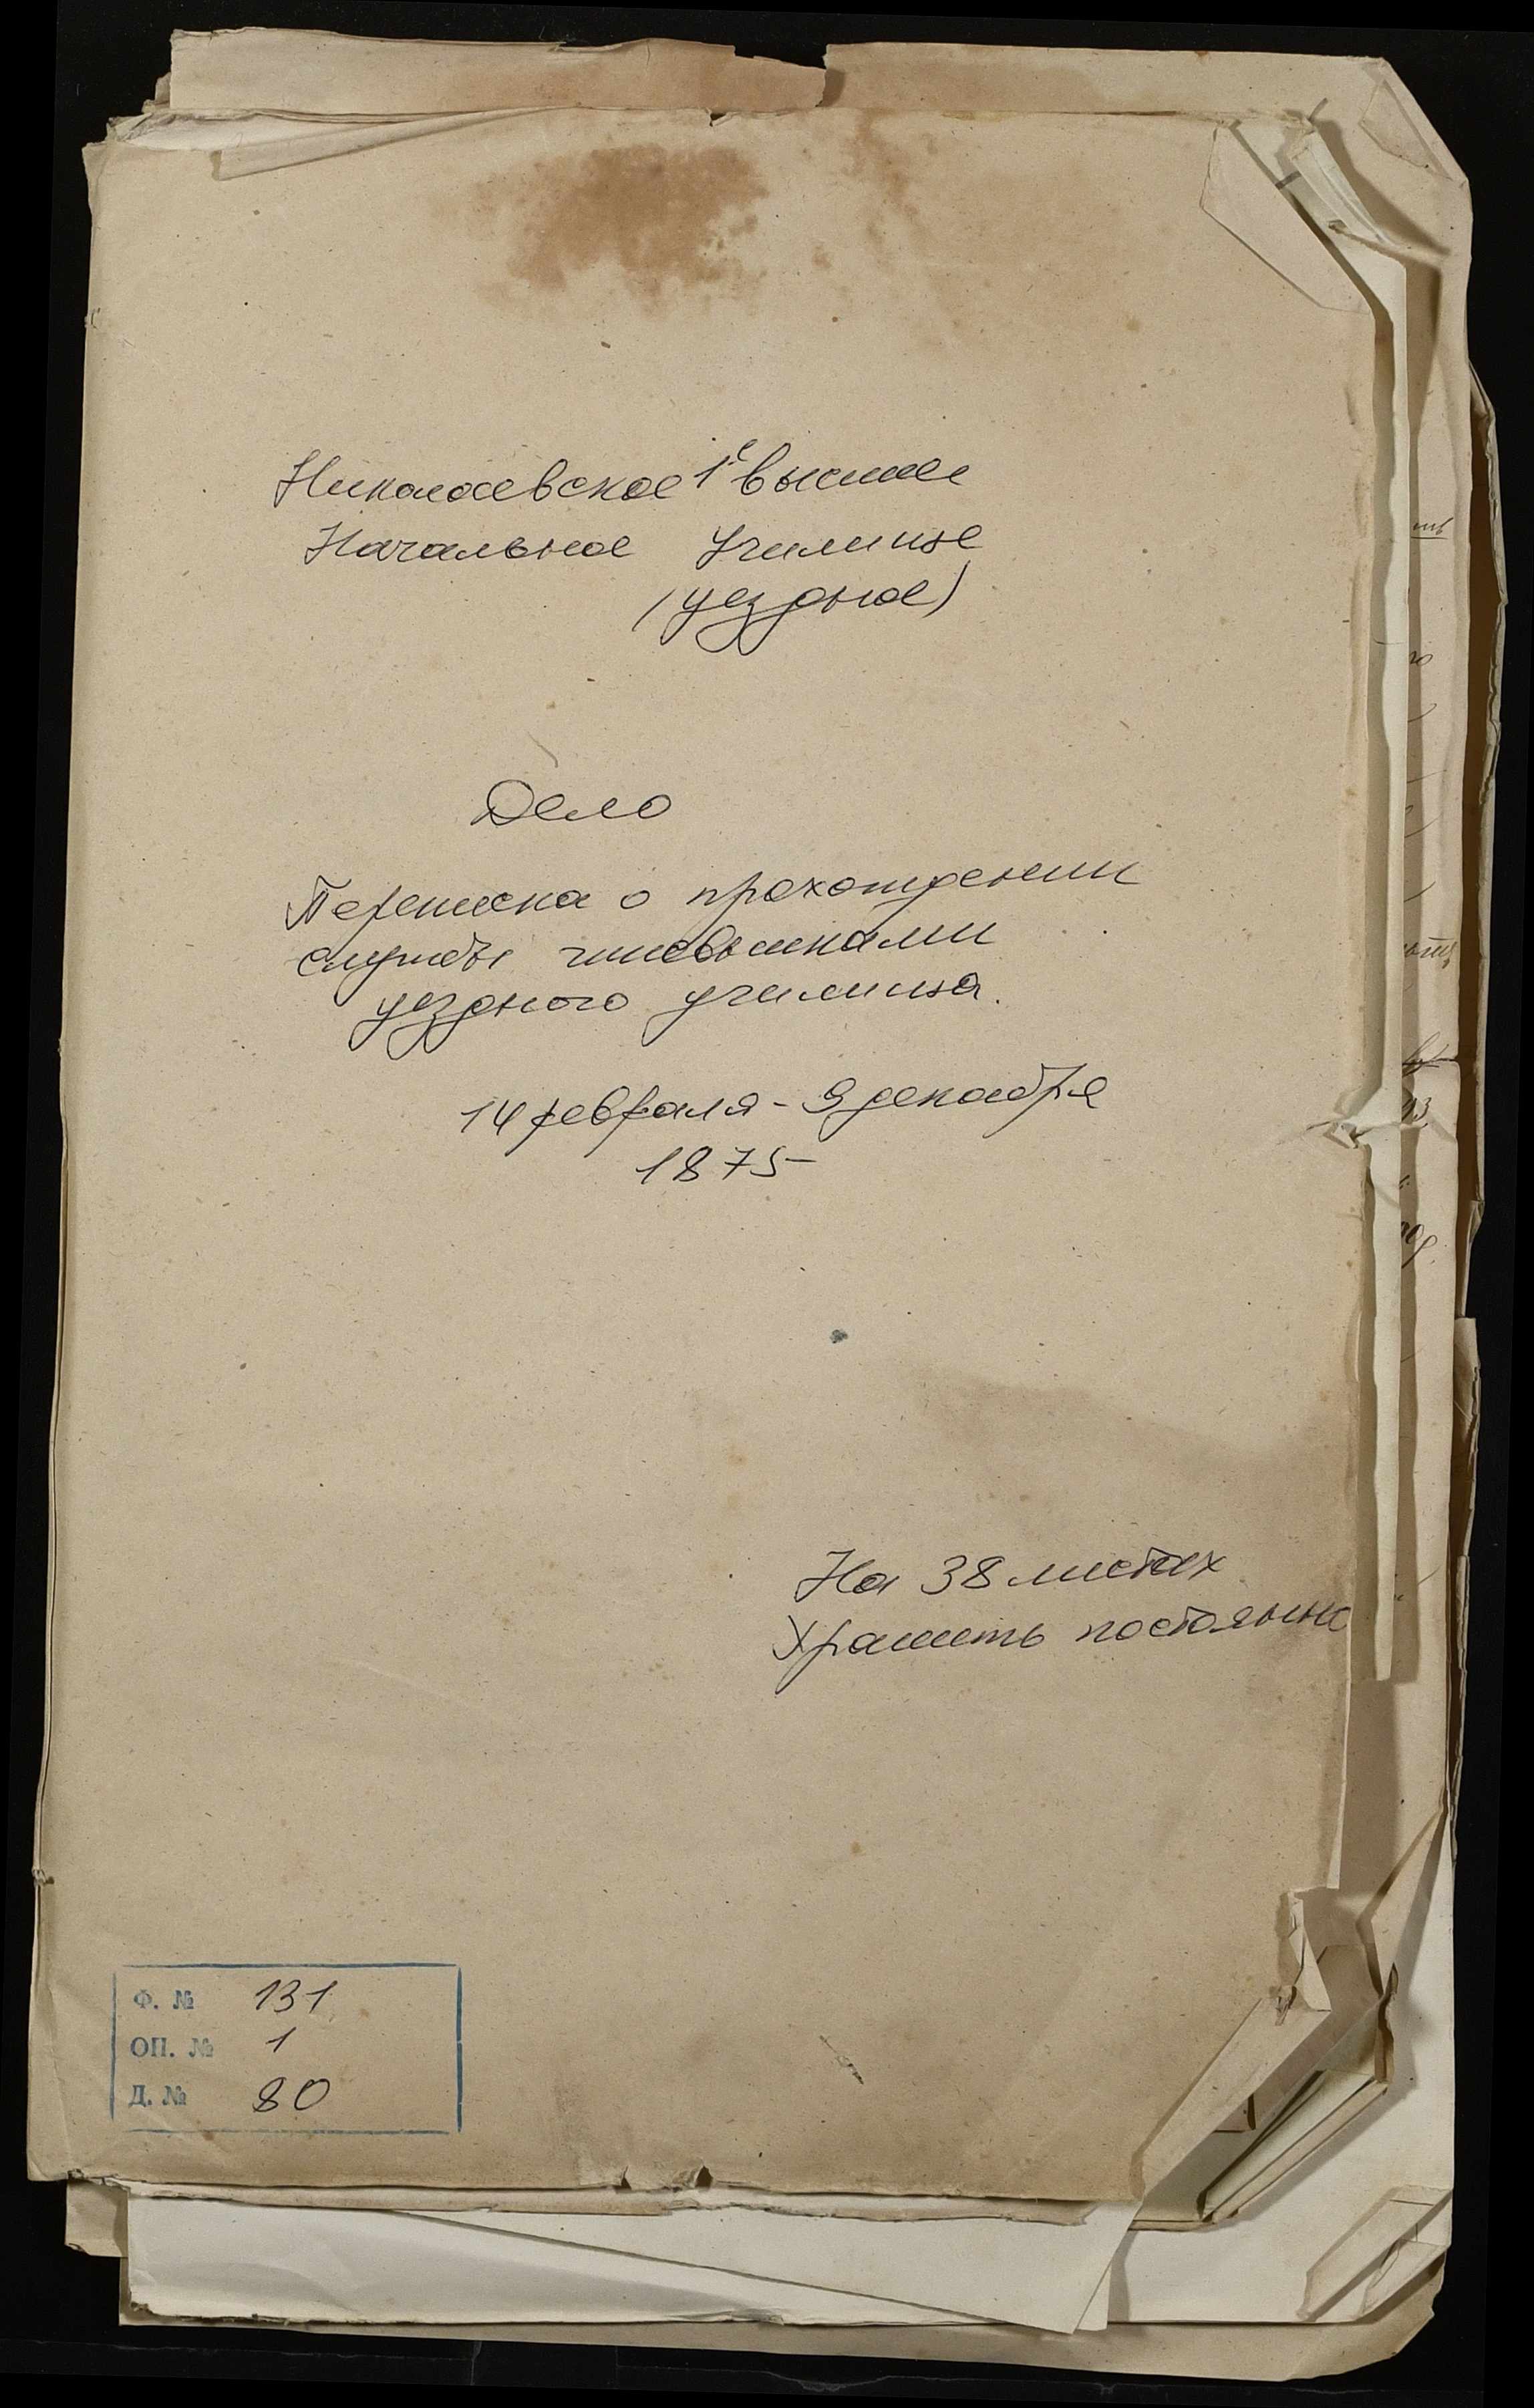 Николаевское 1е высшее
Начальное училище
(уездное)
Дело
Переписка о прохождении
службы чиновниками
уездного училища.
14 февраля - 9 декабря
1875
На 38 листах
Хранить постоянно
Ф. № 131
ОП. № 1
Д. № 80